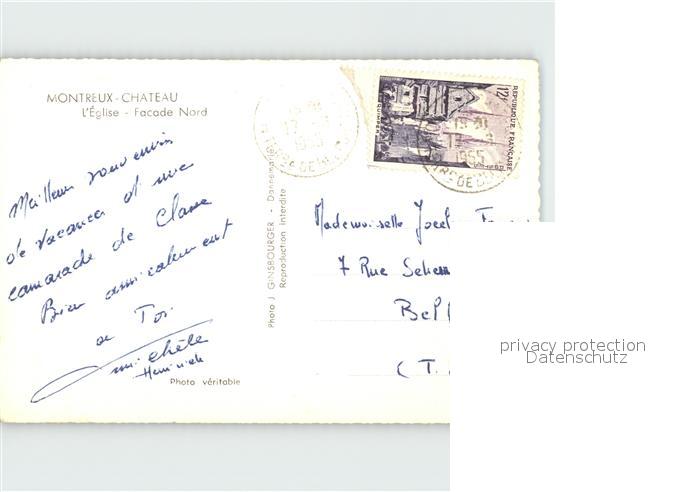 MONTREUX-CHATEAU
L'Église - Facade Nord
Meilleurs souvenirs
de vacances et une
camarade de classe
Bien amicalement
a Toi
Michèle
Photo véritable
Photo J. GINSBOURGER - Dannemarie
Reproduction Interdite
1955
REPUBLIQUE FRANÇAISE
12F
QUIMPER
1955
Mademoiselle
7 Rue
(T.
privacy protection
Datenschutz